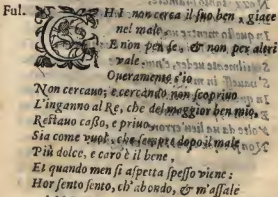 Ful. CHI non cerca il suo ben, giace
nel male,
E non per se, & non per altri
vale.
Overamente s'io
Non cercauo; e cercando non scopriuo
L'inganno al Re, che del maggior ben mio,
Restauo casso, e priuo,
Sia come vuol, che sempre dopo il male
Più dolce, e caro è il bene,
Et quando men si aspetta spesso viene:
Hor sento sento, ch'abondo, & m'assale